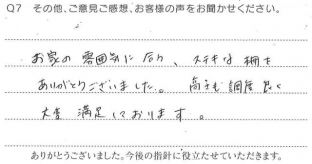 Q7 その他、ご意見ご感想、お客様の声をお聞かせください。
お家の雰囲気に合う、ステキな棚を
ありがとうございました。 高さも調度良く
大変満足しております。
ありがとうございました。今後の指針に役立たせていただきます。